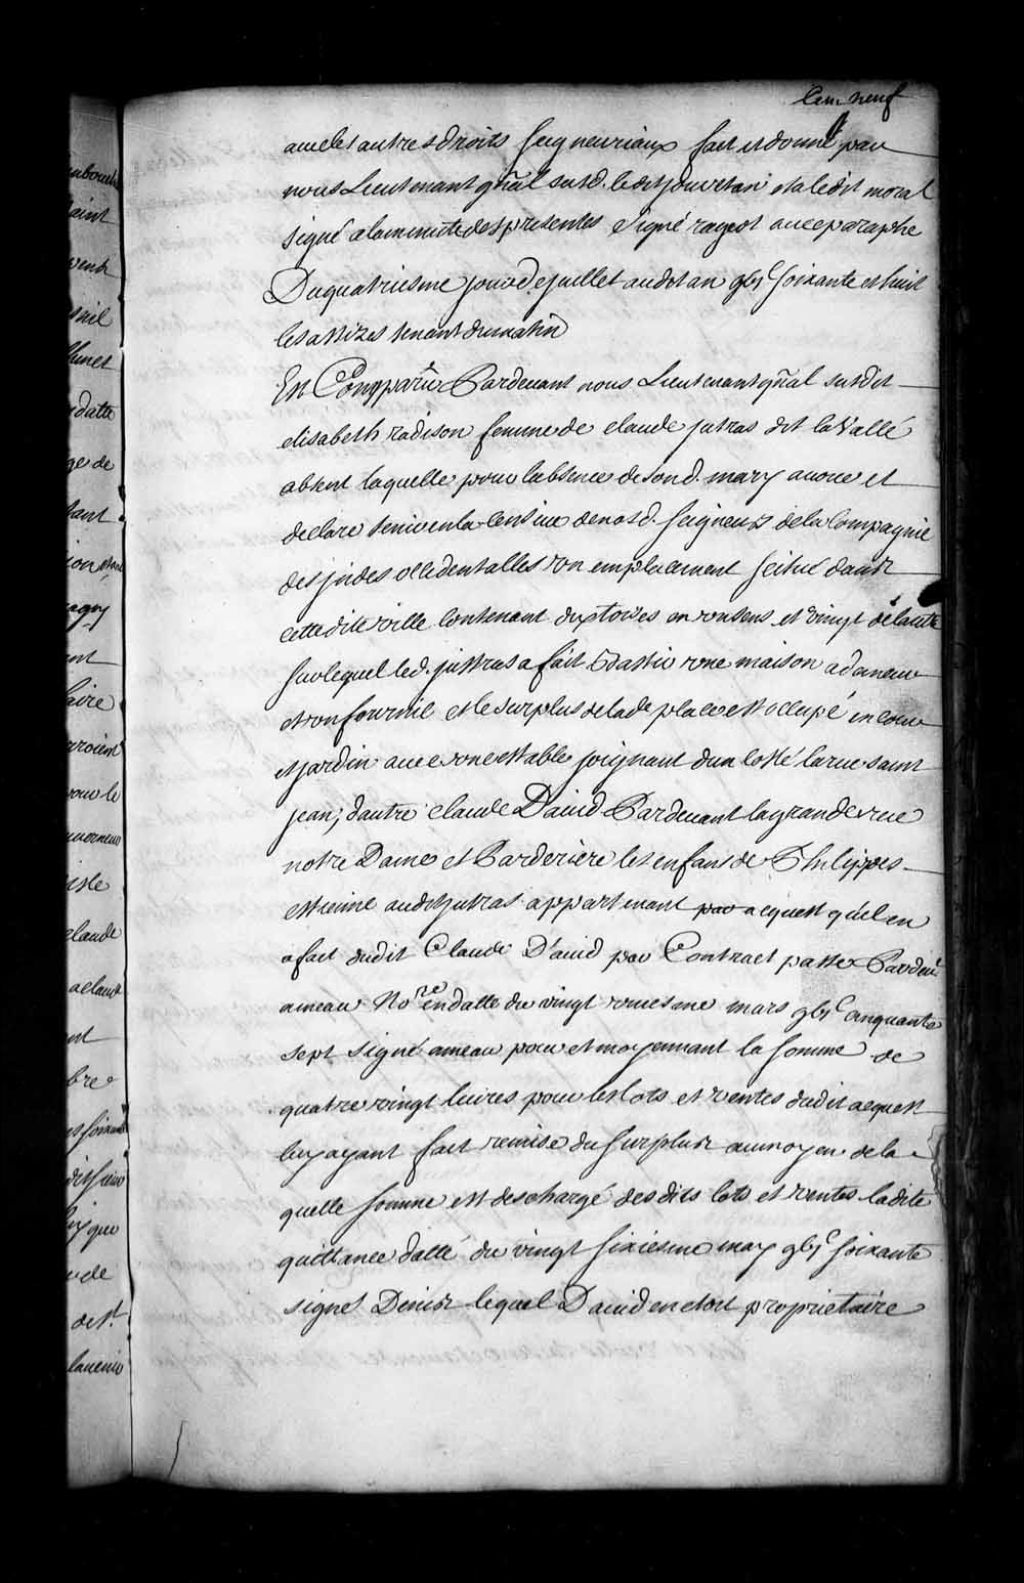 Cent neuf
avec les autres droits seigneuriaux fait et donné par
nous Lieutenant gñal susd. led. jour et an et a ledit moral
signé a la minutte des presentes signé rageot avec paraphe
Du quatriesme jour de juillet audit an gbjc soixante et huit
les assizes tenant du matin
Est Comparüe Pardevant nous Lieutenant gñal susdit
elisabeth radison femme de claude jutras dit la Vallé
absent laquelle pour labsence de sond. mary avoue et
declare tenir en la censive de nosd. seigneurs de la Compagnie
des jndes occidentalles un emplacement scitué dans
cette dite ville contenant dix toises en un sens et vingt de lautre
sur lequel led. juttras a fait bastir une maison
et un fournil et le surplus de lade place est occupé en cour
et jardin avec une estable joignant dun costé la rue saint
jean, dautre claude David Pardevant la grande rue
notre Dame et Par deriere les enfans de Philippes
estienne audit jutras appartenant par acquest quil en
a fait dudit Claude David par Contract passé Pardevt
ameau Nore en datte du vingt uniesme mars gbjc cinquante
sept signé ameau pour et moyennant la somme de
quatre vingt livres pour les lots et ventes dudit acquest
luy ayant fait remise du surplus au moyen de la
quelle somme est deschargé des dits lots et ventes ladite
quittance datté du vingt sixiesme may gbjc soixante
signé Denis lequel David en estoit proprietaire
enbouch
saint
vente
datte
ge de
tant
ent
laire
rroient
pour le
claude
que
de
de St.